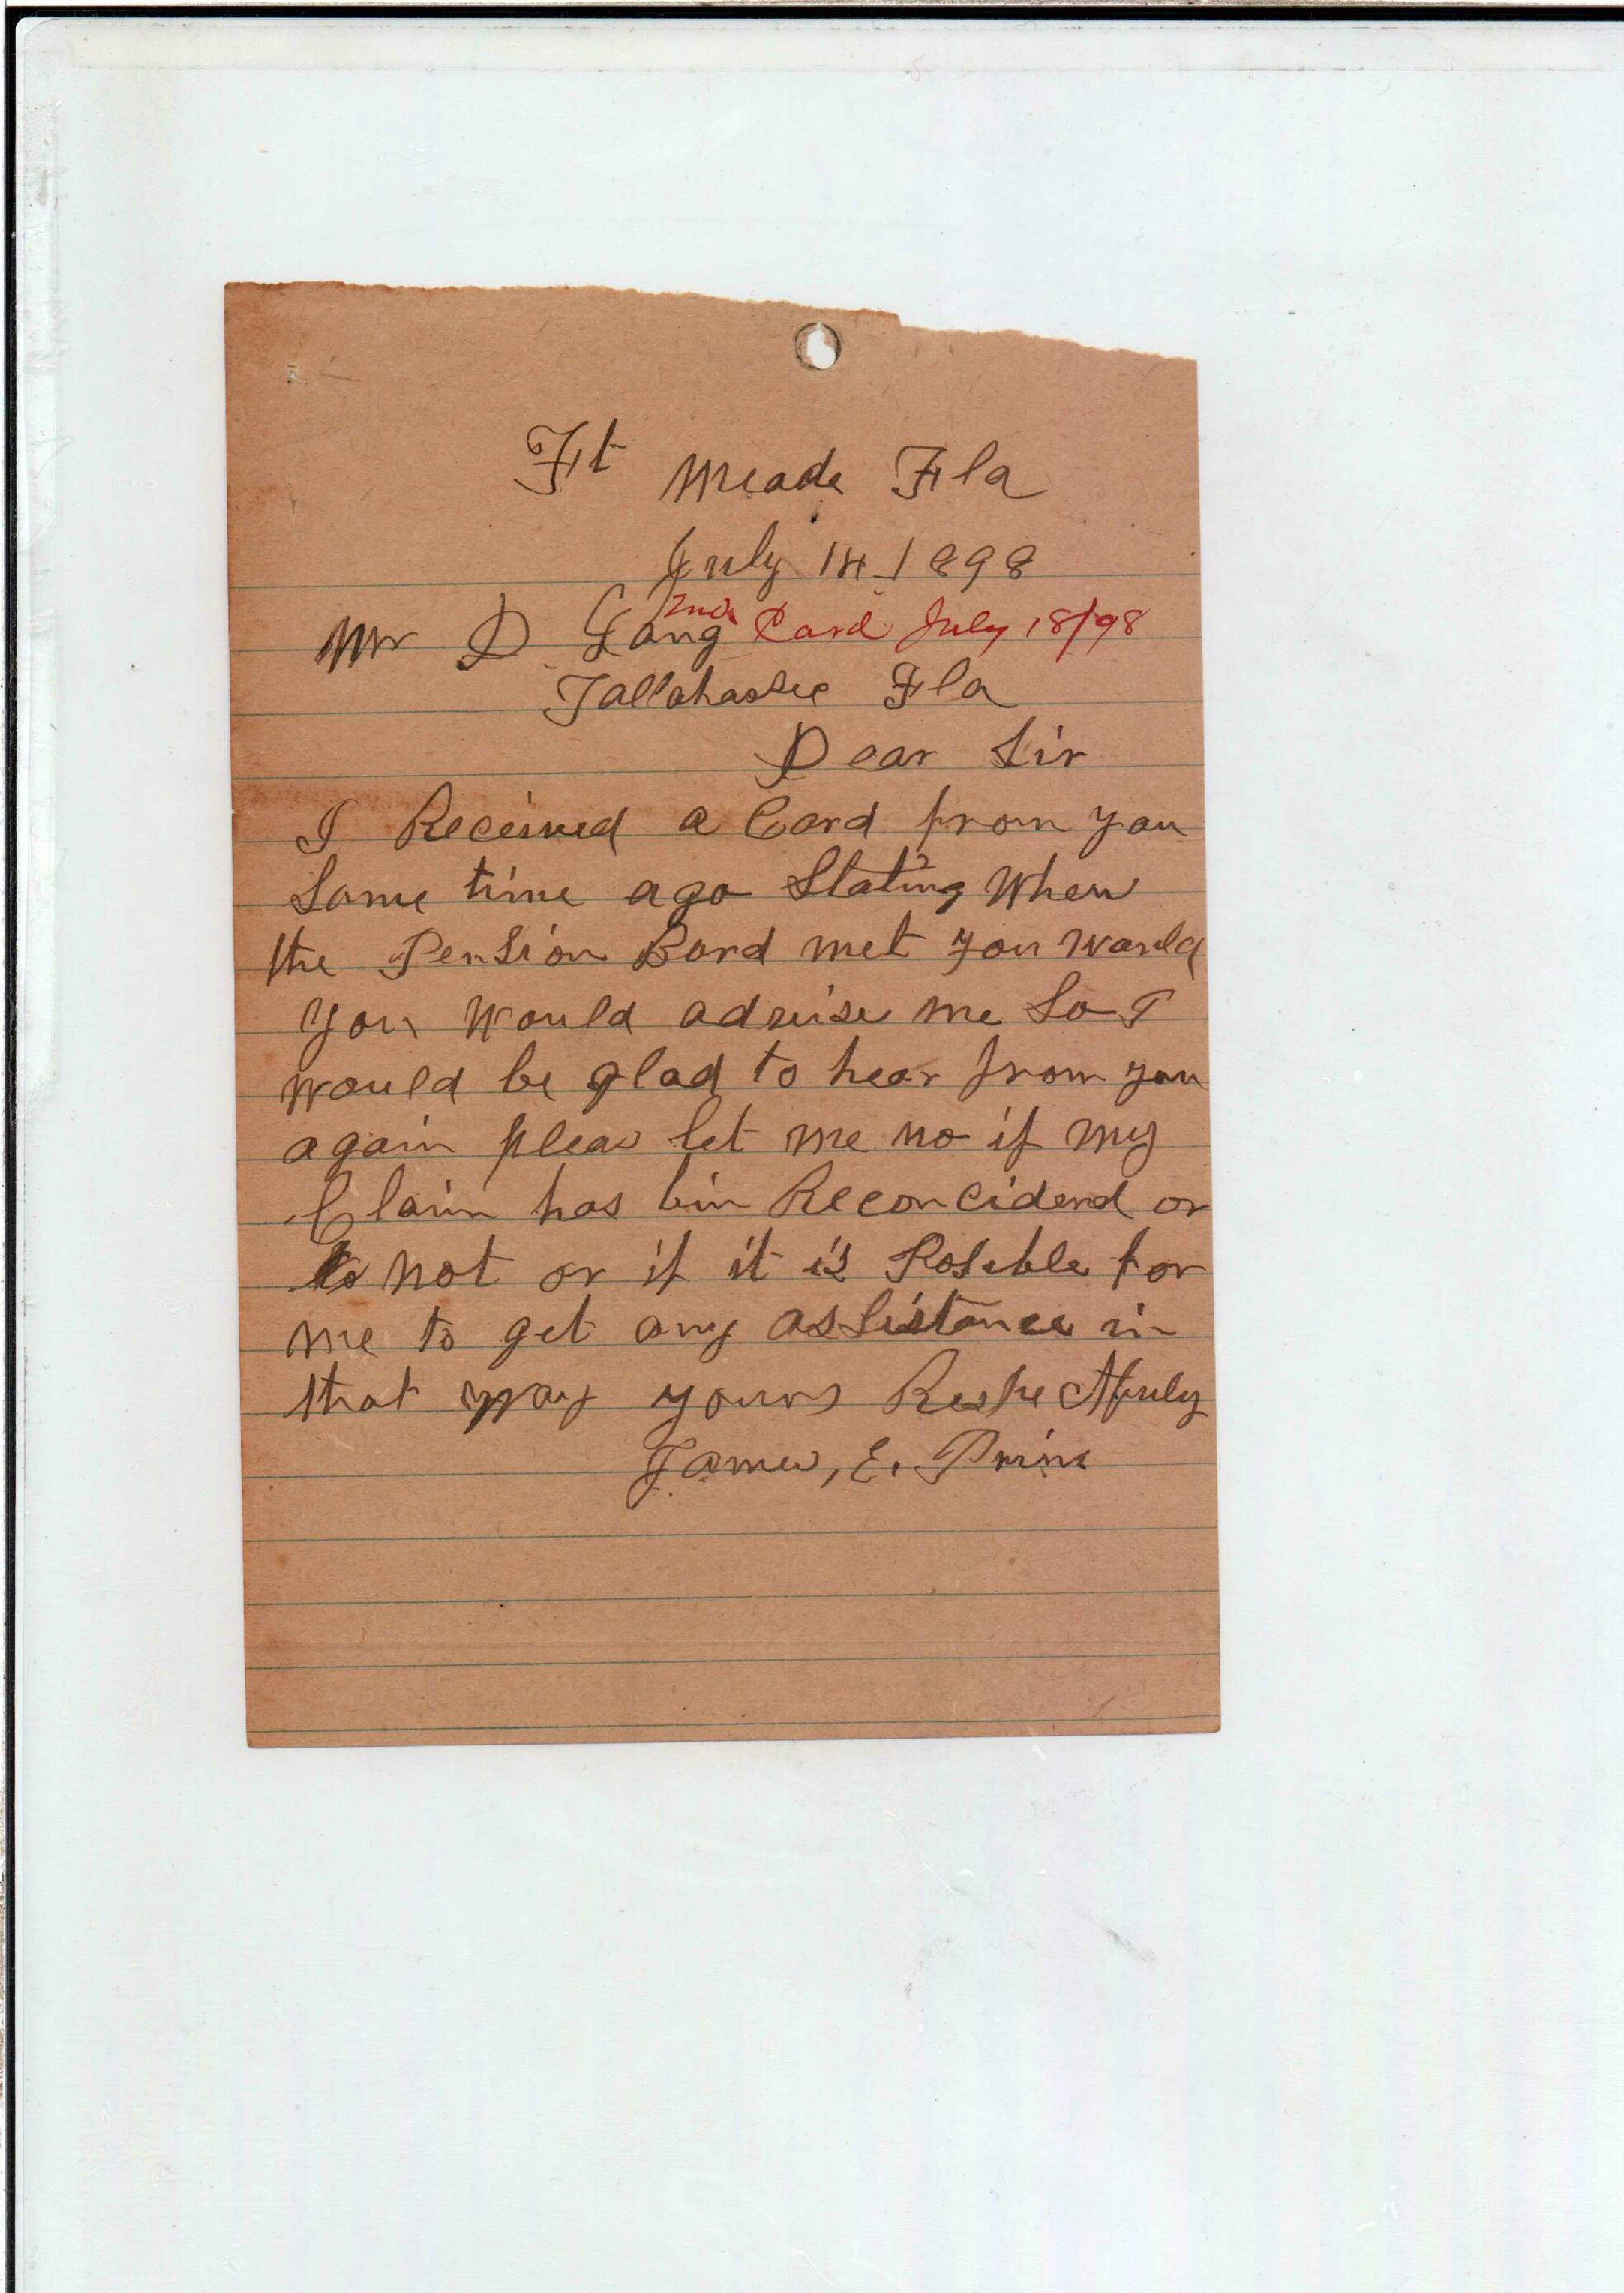 Ft Meade Fla
July 14 1898
Mr D Lang 2nd Card July 18/98
Tallahassee Fla
Dear Sir
I Received a Card from you
Some time ago Stating When
the PenSion Bord met you would
you would advise me So I
would be glad to hear from you
again pleas let me no if my
Claim has bin Reconciderd or
not or if it is Posible for
me to get any asSistance in
that way yours Respectfuly
James, E. Prine